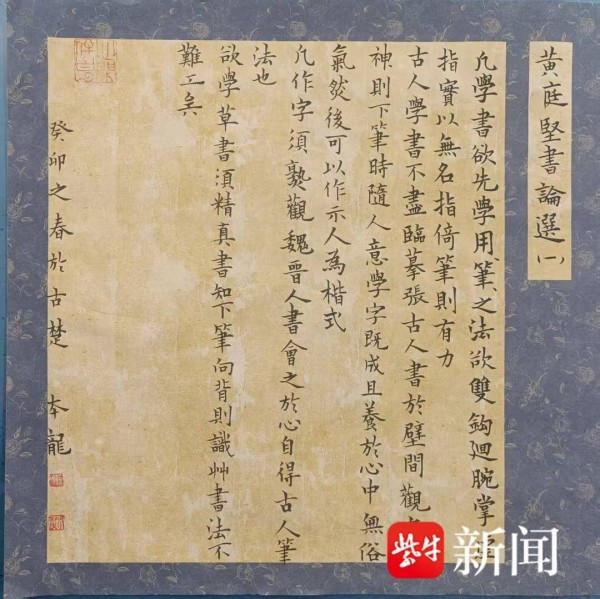 黃庭堅書論選(一)
凡學書欲先學用筆之法欲雙鈎廻腕掌虛
指實以無名指倚筆則有力
古人學書不盡臨摹張古人書於壁間觀
神則下筆時隨人意學字既成且養於心中無俗
氣然後可以作示人為楷式
凡作字須熟觀魏晉人書會之於心自得古人筆
法也
欲學草書須精真書知下筆向背則識艸書法不
難工矣
癸卯之春於古楚 本龍
紫牛新闻